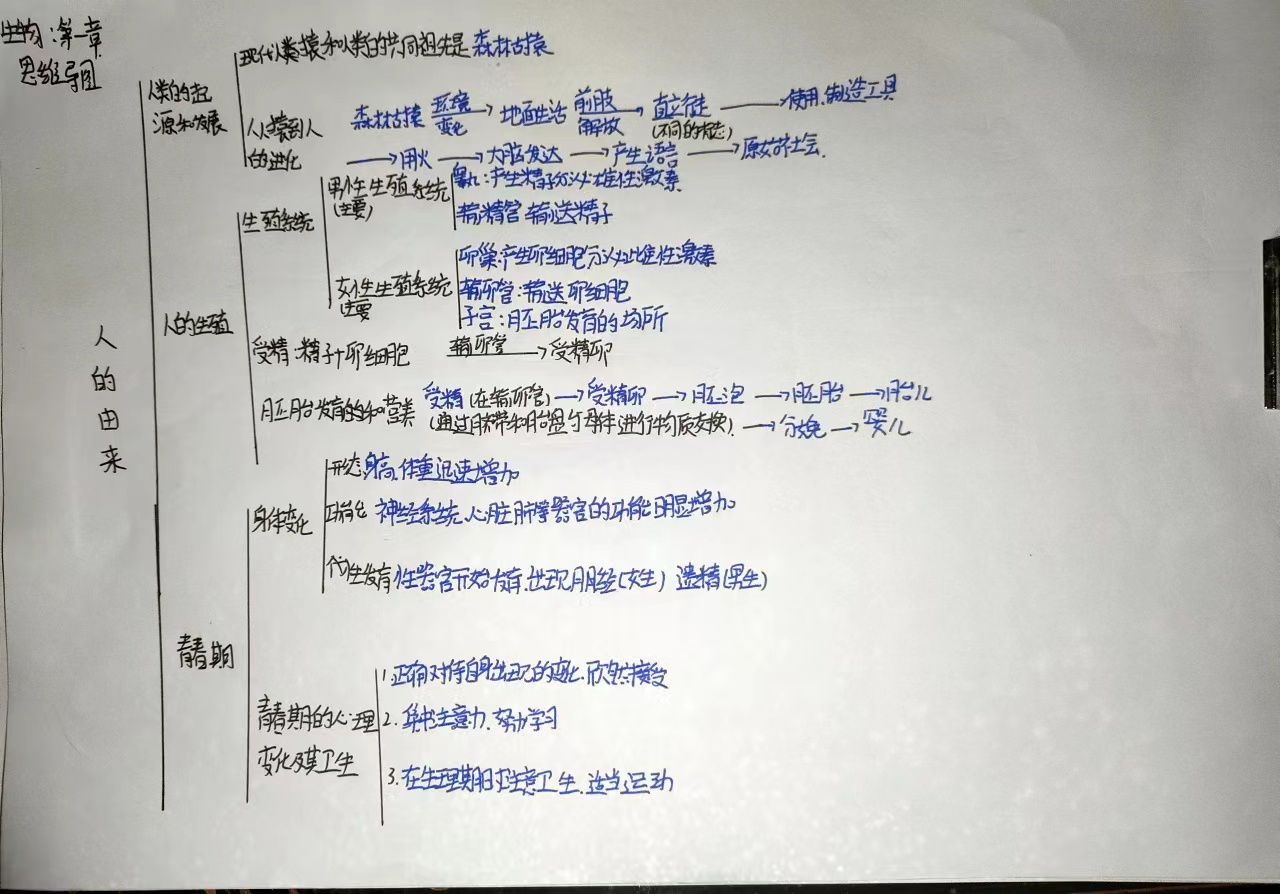 生物:第一章
思维导图
人的由来
人类的起
源和发展
现代类人猿和人类的共同祖先是 森林古猿
从猿到人
的进化
森林古猿 环境变化→ 地面生活 前肢解放→ 直立行走(不同的姿态) → 使用、制造工具
→用火→大脑发达→产生语言→原始社会.
人的生殖
生殖系统
男性生殖系统
(主要)
睾丸:产生精子分泌雄性激素.
输精管 输送精子
女性生殖系统
主要
卵巢:产生卵细胞分泌雌性激素
输卵管:输送卵细胞
子宫:胚胎发育的场所
受精:精子+卵细胞 输卵管→受精卵
胚胎发育的和营养
受精(在输卵管)→受精卵→胚泡→胚胎→胎儿
(通过脐带和胎盘与母体进行物质交换).→分娩→婴儿
青春期
身体变化
形态 身高、体重迅速增加
功能 神经系统、心脏肺等器官的功能明显增加
性发育 性器官开始发育.出现月经(女生) 遗精(男生)
青春期的心理
变化及其卫生
1.正确对待自身出现的变化.欣然接受
2.集中注意力、努力学习
3.在生理期时注意卫生.适当运动